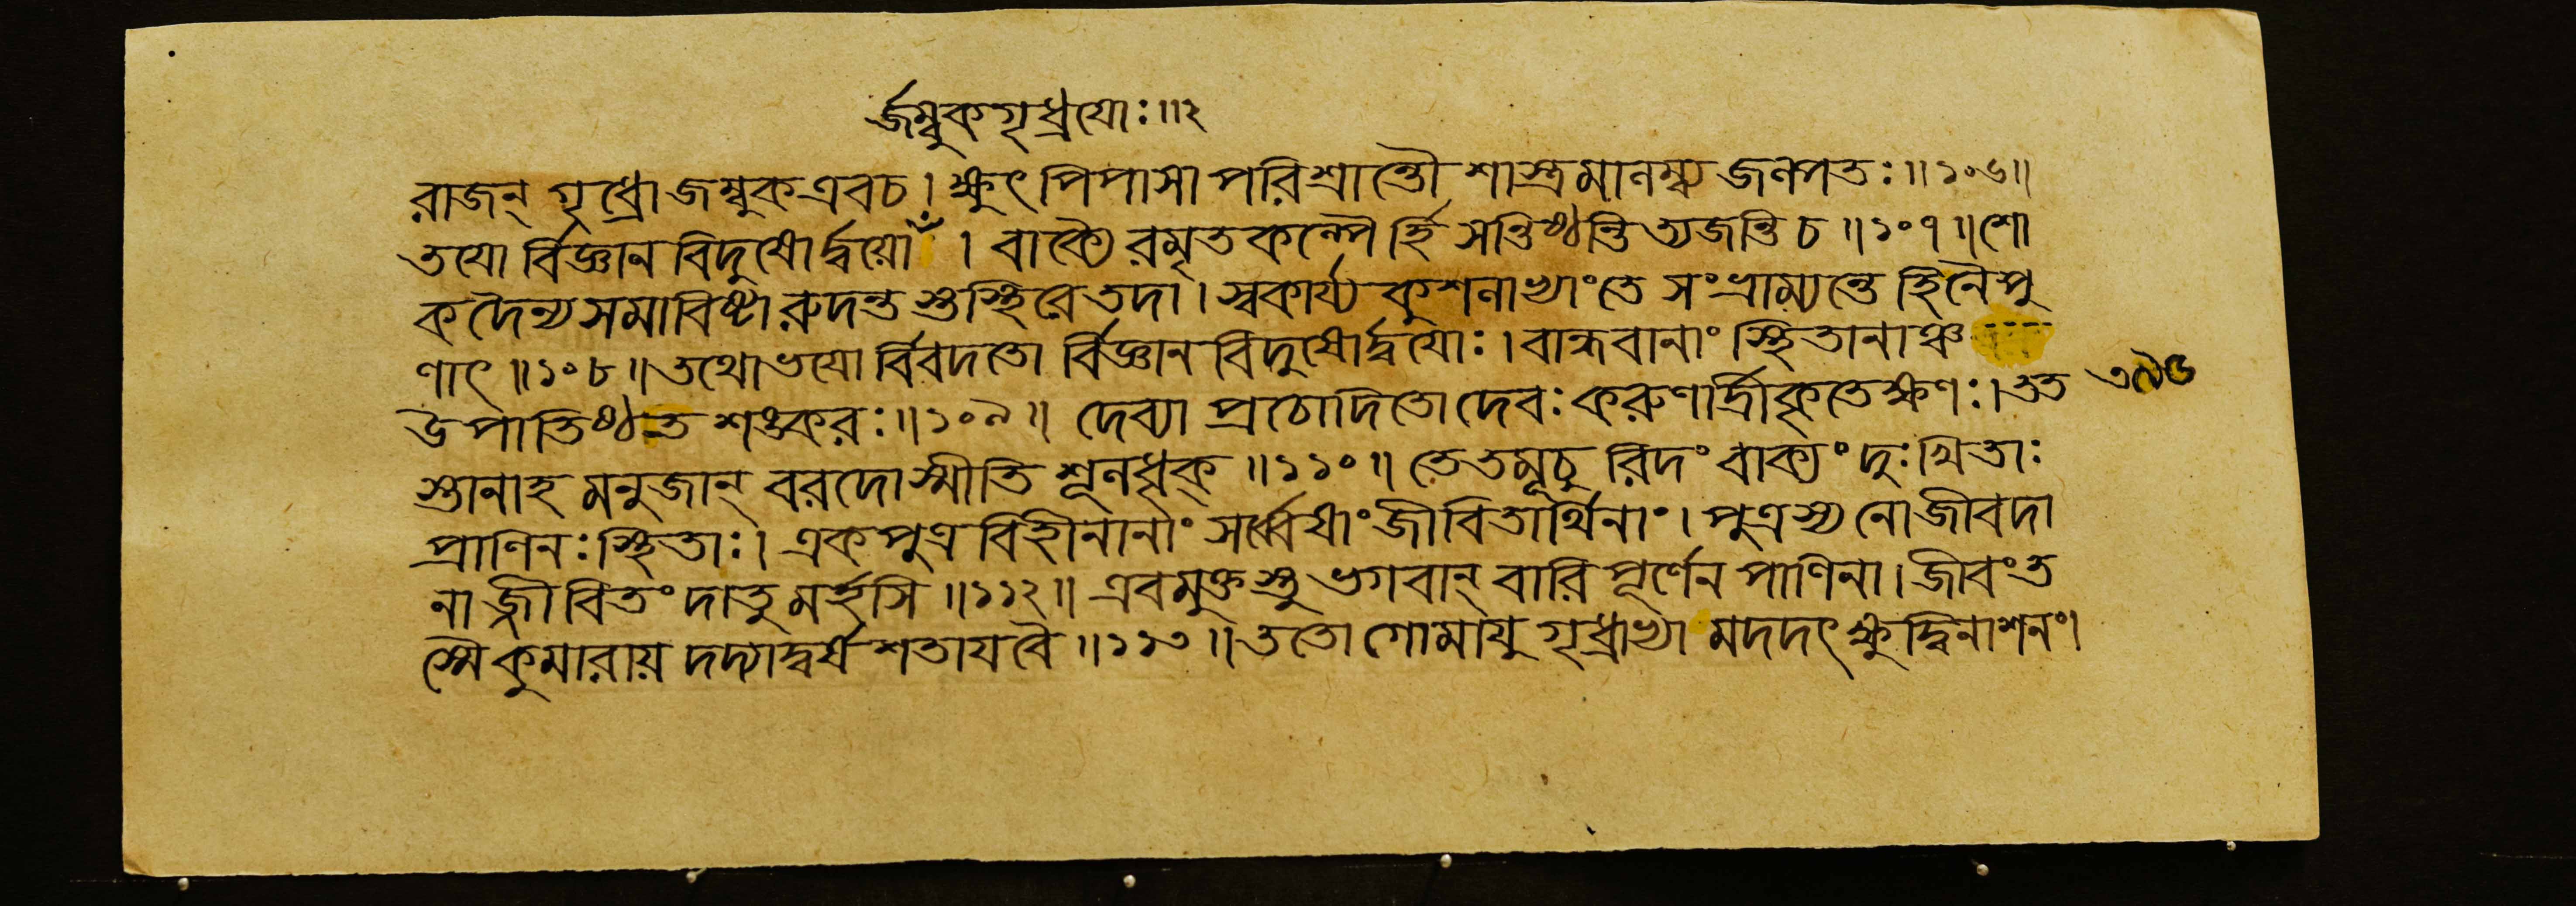 র্জম্বুকগৃধ্রযোঃ॥২
রাজন্ গৃধ্রো জম্বুক এবচ। ক্ষুৎ পিপাসা পরিশ্রান্তৌ শাস্ত্রমালম্ব্য জল্পতঃ॥১০৬॥
তযো র্বিজ্ঞান বিদুষোর্দ্বয়োঃ। বাক্যৈ রমৃতকল্পৈ র্হি সন্তিষ্ঠন্তি ত্যজন্তি চ॥১০৭॥শো
ক দৈন্য সমাবিষ্টা রুদন্ত শুস্থিরে তদা। স্বকার্য্য কুশলাখ্যাংতে সংভ্রাম্যন্তে হি নৈপু
ণাৎ॥১০৮॥তথোভযো র্বিবদতো র্বিজ্ঞান বিদুষোর্দ্বযোঃ। বান্ধবানাং স্থিতানাঞ্চ
উপাতিষ্ঠত শঙ্করঃ॥১০৯॥ দেব্যা প্রচোদিতো দেবঃ করুণার্দ্রীকৃতেক্ষণঃ। তত
৩৯৬
স্তানাহ মনুজান্ বরদোস্মীতি শূলধৃক্॥১১০॥ তে তমূচু রিদং বাক্যং দুঃখিতাঃ
প্রাণিনঃ স্থিতাঃ। একপুত্র বিহীনানাং সর্ব্বেষাং জীবিতার্থিনাং। পুত্রস্য নো জীবদা
না জ্জীবিতং দাতু মর্হসি॥১১২॥ এবমুক্ত স্তু ভগবান্ বারি পূর্ণেন পাণিনা। জীবং ত
স্মৈ কুমারায় দদ্যাদ্বর্ষ শতাযবৈ॥১১৩॥ততো গোমাযু গৃধ্রাখ্যা মদদৎ ক্ষুদ্বিনাশনং।